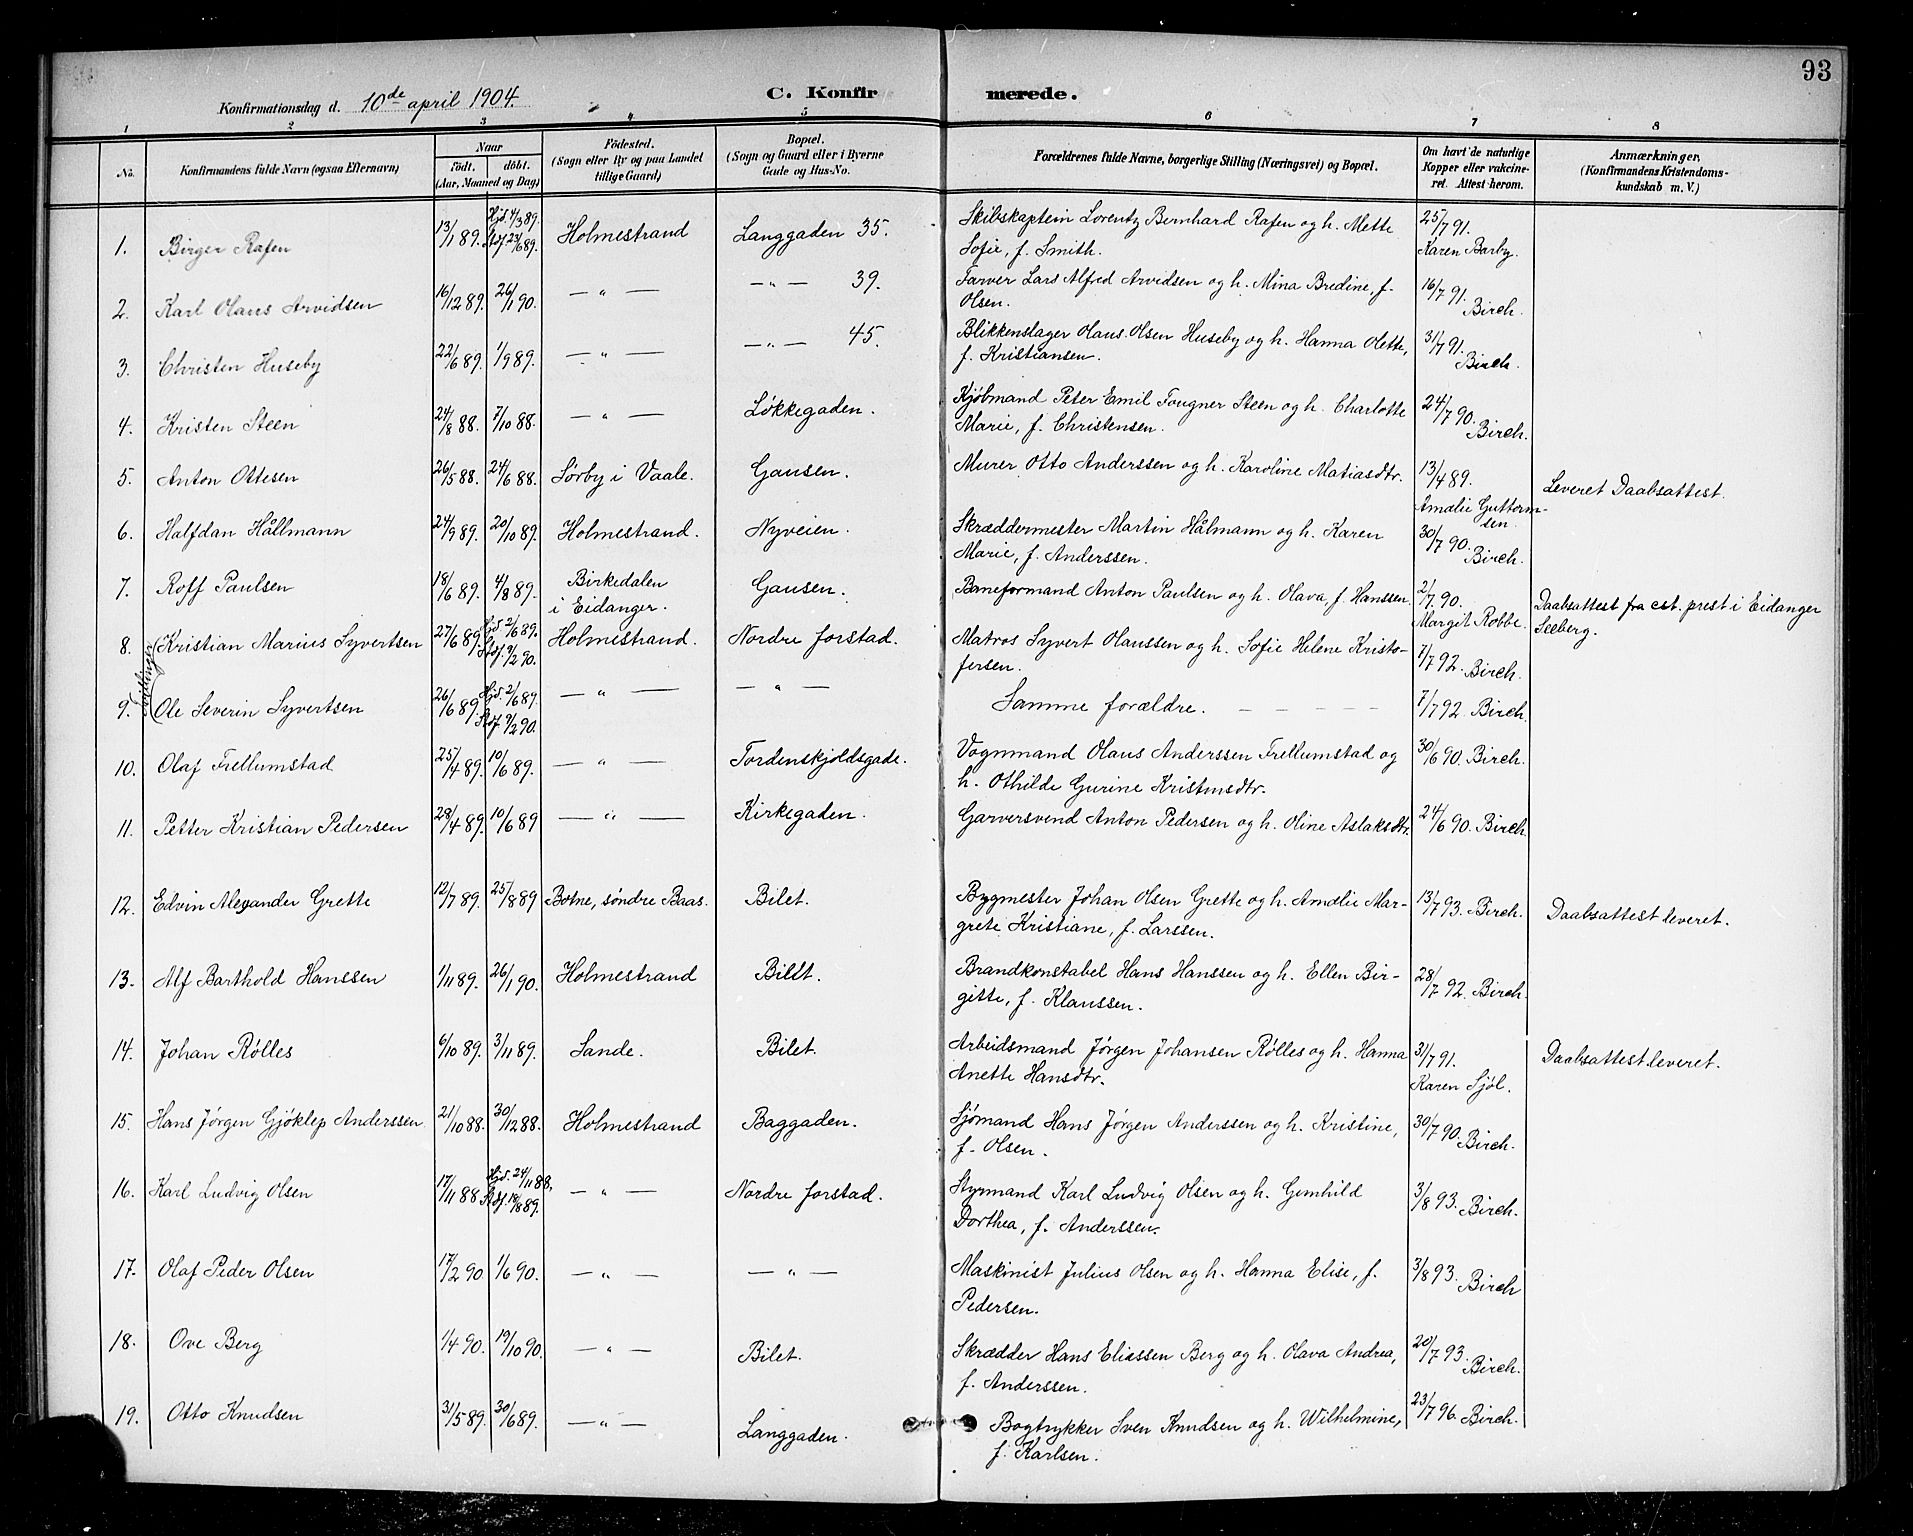 93
Konfirmationsdag d. 10de april 1904.
C. Konfirmerede.
1 2 3 4 5 6 7 8
No. Konfirmandens fulde Navn (ogsaa Efternavn) Naar Født. døbt. (Aar, Maaned og Dag) Fødested. (Sogn eller By og paa Landet tillige Gaard) Bopæl. (Sogn og Gaard eller i Byerne Gade og Hus-No. Forældrenes fulde Navne, borgerlige Stilling (Næringsvei) og Bopæl. Om havt de naturlige Kopper eller vakcineret. Attest herom. Anmærkninger, (Konfirmandens Kristendomskundskab m. V.)
1. Birger Rafen 13/1 89. Hjd. 4/3 89. Stdf. 23/6 89. Holmestrand Langgaden 35. Skibskaptein Lorentz Bernhard Rafen og h. Mette Sofie, f. Smith. 25/7 91. Karen Barby.
2. Karl Olaus Arvidsen 16/12 89. 26/1 90. — " — — " — 39. Farver Lars Alfred Arvidsen og h. Mina Bredine, f. Olsen. 16/7 91. Birch.
3. Christen Huseby 22/6 89. 1/9 89. — " — — " — 45. Blikkenslager Olaus Olsen Huseby og h. Hanna Olette, f. Kristiansen. 31/7 91. Birch.
4. Kristen Steen 24/8 88. 7/10 88. — " — Løkkegaden. Kjøbmand Peter Emil Fougner Steen og h. Charlotte Marie, f. Christensen. 24/7 90. Birch.
5. Anton Ottesen 26/5 88. 24/6 88. Sørby i Vaale. Gausen. Murer Otto Anderssen og h. Karoline Matiasdtr. 13/4 89. Amalie Guttormsen. Leveret Daabsattest.
6. Halfdan Hållmann 24/9 89. 20/10 89. Holmestrand. Nyveien. Skræddermester Martin Hålmann og h. Karen Marie, f. Anderssen. 30/7 90. Birch.
7. Rolf Paulsen 18/6 89. 4/8 89. Birkedalen i Eidanger. Gausen. Baneformand Anton Paulsen og h. Olava, f. Hanssen. 2/7. 90. Margit Robbe. Daabsattest fra cst. prest i Eidanger Seeberg.
Tvillinger
8. (Kristian Marius Syvertsen 27/6 89. Hjd. 2/6 89. Stdf. 9/2 90. Holmestrand. Nordre forstad. Matros Syvert Olaussen og h. Sofie Helene Kristofersen. 7/7 92. Birch.
9. (Ole Severin Syvertsen 26/6 89. Hjd. 2/6 89. Stdf. 9/2 90. — " — — " — Samme forældre. — — — — 7/7 92. Birch.
10. Olaf Frellumstad 25/4 89. 10/6 89. — " — Tordenskjoldsgade. Vognmand Olaus Anderssen Frellumstad og h. Othilde Gurine Kristensdtr. 30/6 90. Birch.
11. Petter Kristian Pedersen 28/4 89. 10/6 89 — " — Kirkegaden. Garversvend Anton Pedersen og h. Oline Aslaksdtr. 24/6 90. Birch.
12. Edvin Alexander Grette 12/7 89. 25/8 89 Botne, søndre Baas. Bilet. Bygmester Johan Olsen Grette og h. Amalie Margrete Kristiane, f. Larssen. 13/7 93. Birch. Daabsattest leveret.
13. Alf Barthold Hanssen 1/11 89. 26/1 90. Holmestrand Bilet. Brandkonstabel Hans Hanssen og h. Ellen Birgitte, f. Klaussen. 28/7 92. Birch.
14. Johan Rølles 6/10 89. 3/11 89. Sande. Bilet. Arbeidsmand Jørgen Johansen Rølles og h. Hanna Anette Hansdtr. 31/7 91. Karen Sjøl. Daabsattest leveret.
15. Hans Jørgen Gjøklep Anderssen 21/10 88. 30/12 88. Holmestrand Baggaden. Sjømand Hans Jørgen Anderssen og h. Kristine, f. Olsen. 30/7 90. Birch.
16. Karl Ludvig Olsen 17/11 88. Hjd. 24/11 88. Stdf. 18/8 89. — " — Nordre forstad. Styrmand Karl Ludvig Olsen og h. Gunhild Dorthea, f. Anderssen. 3/8 93. Birch.
17. Olaf Peder Olsen 17/2 90 1/6 90. — " — — " — Maskinist Julius Olsen og h. Hanna Elise, f. Pedersen. 3/8 93. Birch
18. Ove Berg 1/4 90. 19/10 90. — " — Bilet. Skrædder Hans Eliassen Berg og h. Olava Andrea, f. Anderssen. 20/7 93. Birch.
19. Otto Knudsen 31/5 89. 30/6 89. — " — Langgaden. Bogtrykker Sven Knudsen og h. Wilhelmine, f. Karlsen. 23/7 96. Birch.